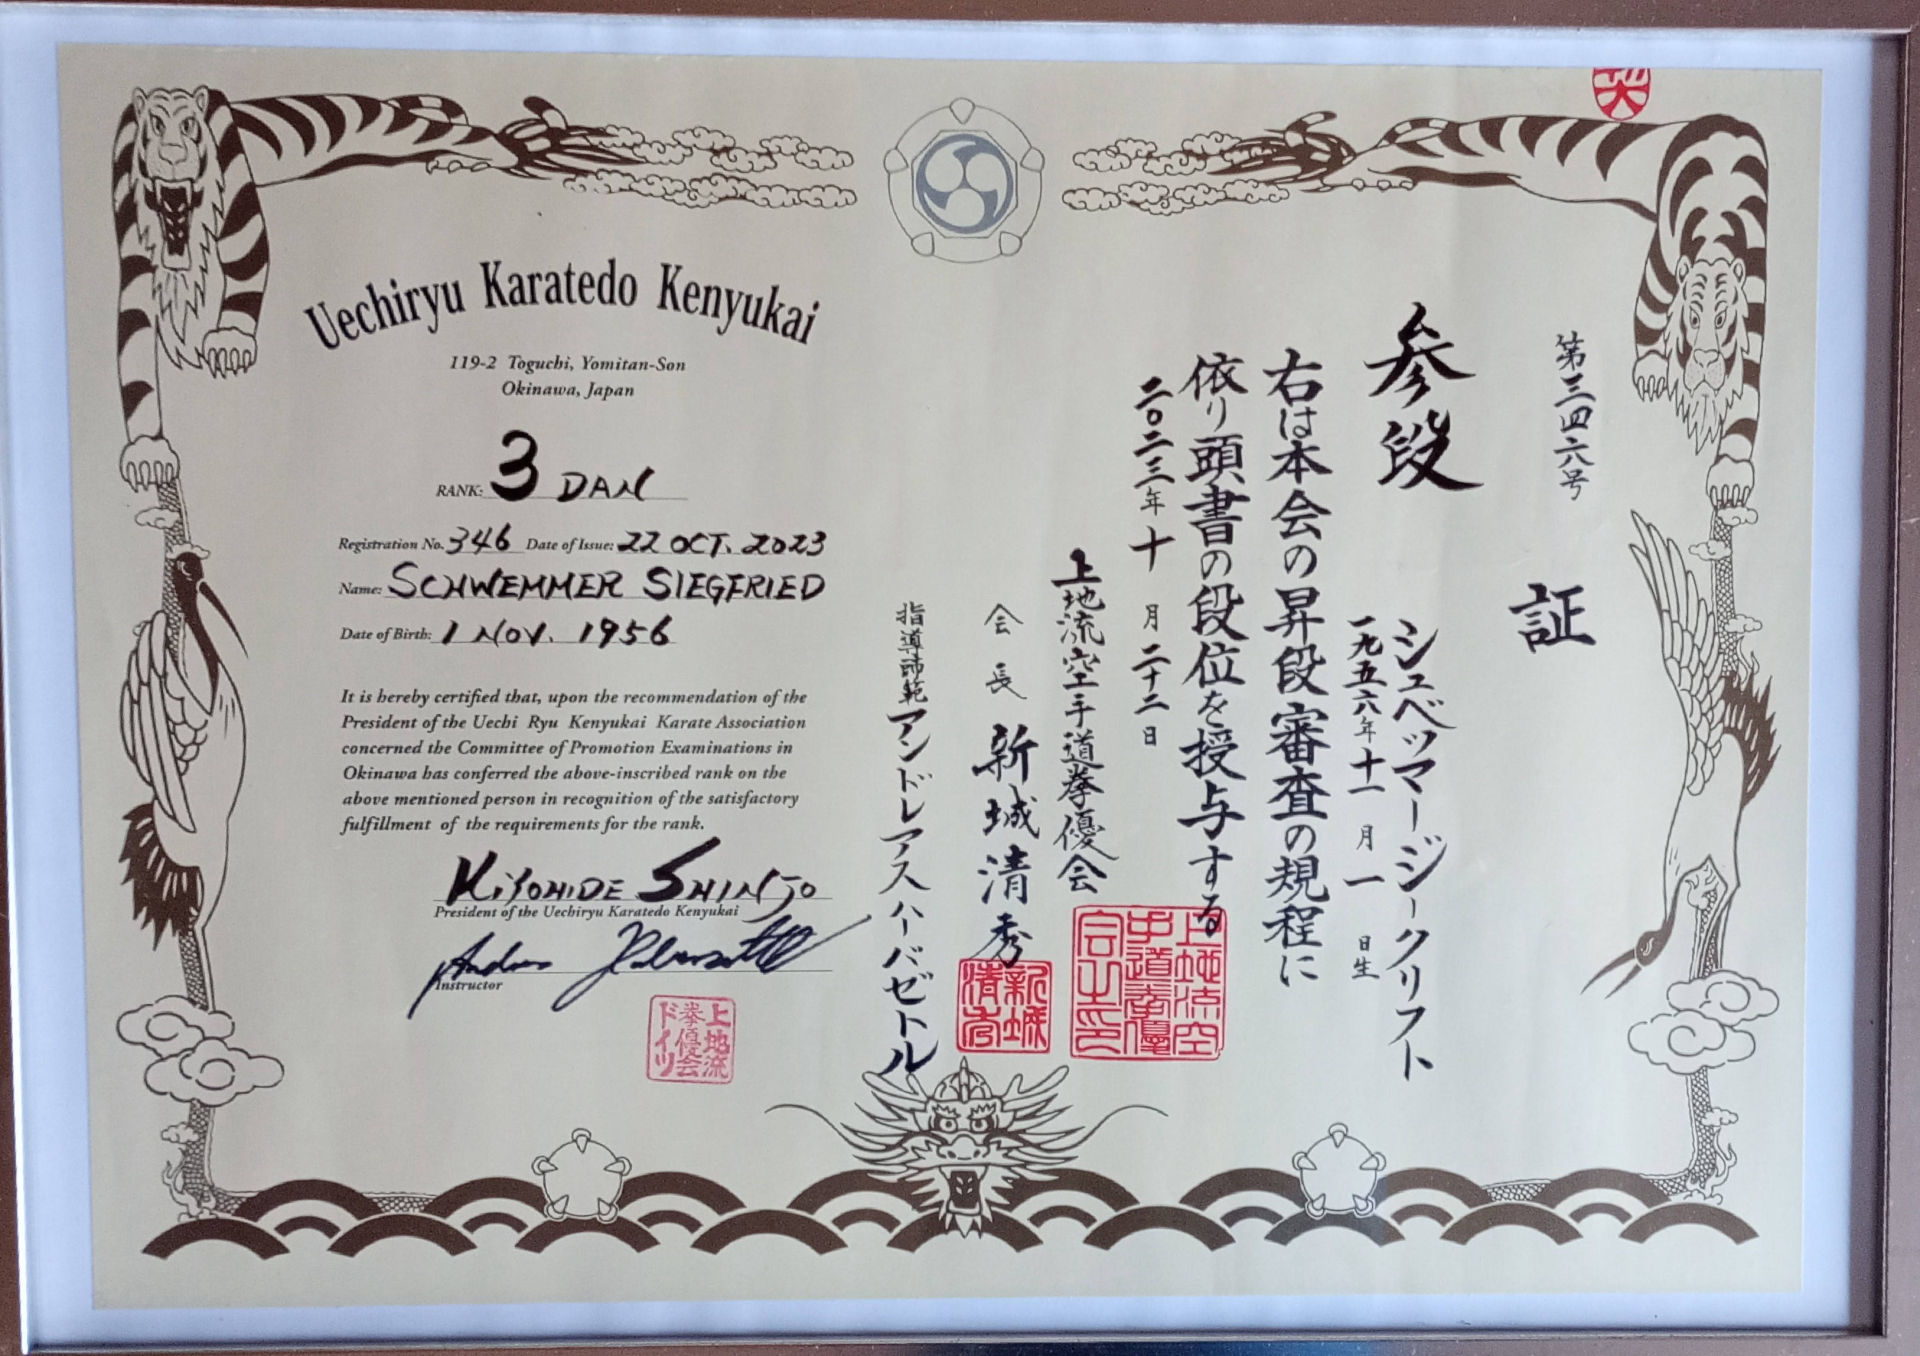 Uechiryu Karatedo Kenyukai
119-2 Toguchi, Yomitan-Son
Okinawa, Japan
RANK: 3 DAN
Registration No. 346 Date of Issue: 22 OCT. 2023
Name: SCHWEMMER SIEGFRIED
Date of Birth: 1 NOV. 1956
It is hereby certified that, upon the recommendation of the
President of the Uechi Ryu Kenyukai Karate Association
concerned the Committee of Promotion Examinations in
Okinawa has conferred the above-inscribed rank on the
above mentioned person in recognition of the satisfactory
fulfillment of the requirements for the rank.
KIYOHIDE SHINJO
President of the Uechiryu Karatedo Kenyukai
Instructor
上地流
拳優会
ドイツ
第三四六号
証
参段
シュベッマージークリフト
一九五六年十一月一日生
右は本会の昇段審査の規程に
依り頭書の段位を授与する
二〇二三年十月二十二日
上地流空手道拳優会
会長 新城清秀
指導師範 アンドレアスハーバゼトル
上地流空
手道拳優
会之印
新城
清秀